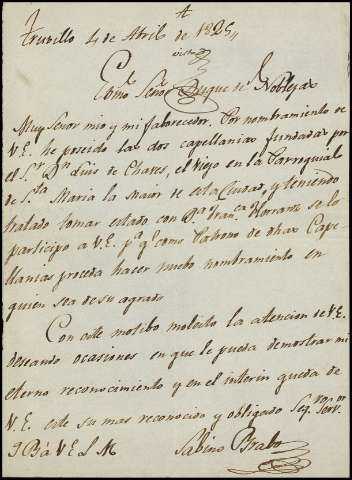 Truxillo 4 de Abril de 1825,,
Exmo Señor Duque de Noblejas
Muy Señor mio y mi faborecedor. Por nombramiento de
V.E. he poseido las dos capellanias fundadas por
el Sr. Dn Luis de Chabes, el Viejo en la Parroquial
de Sta Maria la maior de esta Ciudad, y teniendo
tratado tomar estado con Da Franca Morrante se lo
participo a V.E. pa qe como Patrono de dhas Cape
llanias proceda hacer nuebo nombramiento en
quien sea de su agrado
Con este motibo molesto la atencion de V.E.
deseando ocasiones en que le pueda demostrar mi
eterno reconocimiento y en el interin queda de
V.E. este su mas reconocido y obligado Segro Servor
Q B a V E L M
Sabino Brabo